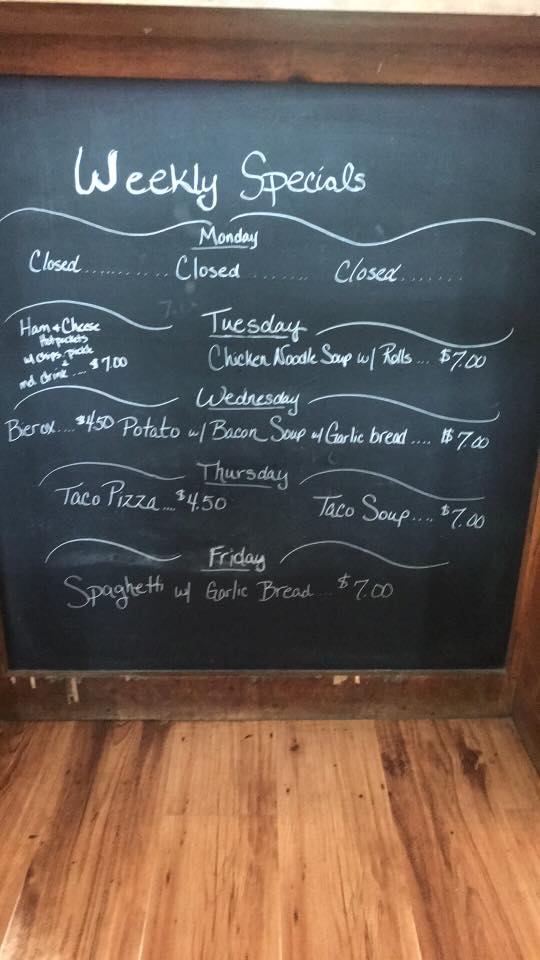 Weekly Specials
Monday
Closed.............. Closed ........ Closed.......
Tuesday
Ham & Cheese
Hotpockets
w/ chips, pickle
+
md. drink .... $7.00
Chicken Noodle Soup w/ Rolls ... $7.00
Wednesday
Bierox.... $4.50 Potato w/ Bacon Soup w/ Garlic bread .... $7.00
Thursday
Taco Pizza .... $4.50
Taco Soup.... $7.00
Friday
Spaghetti w/ Garlic Bread ... $7.00